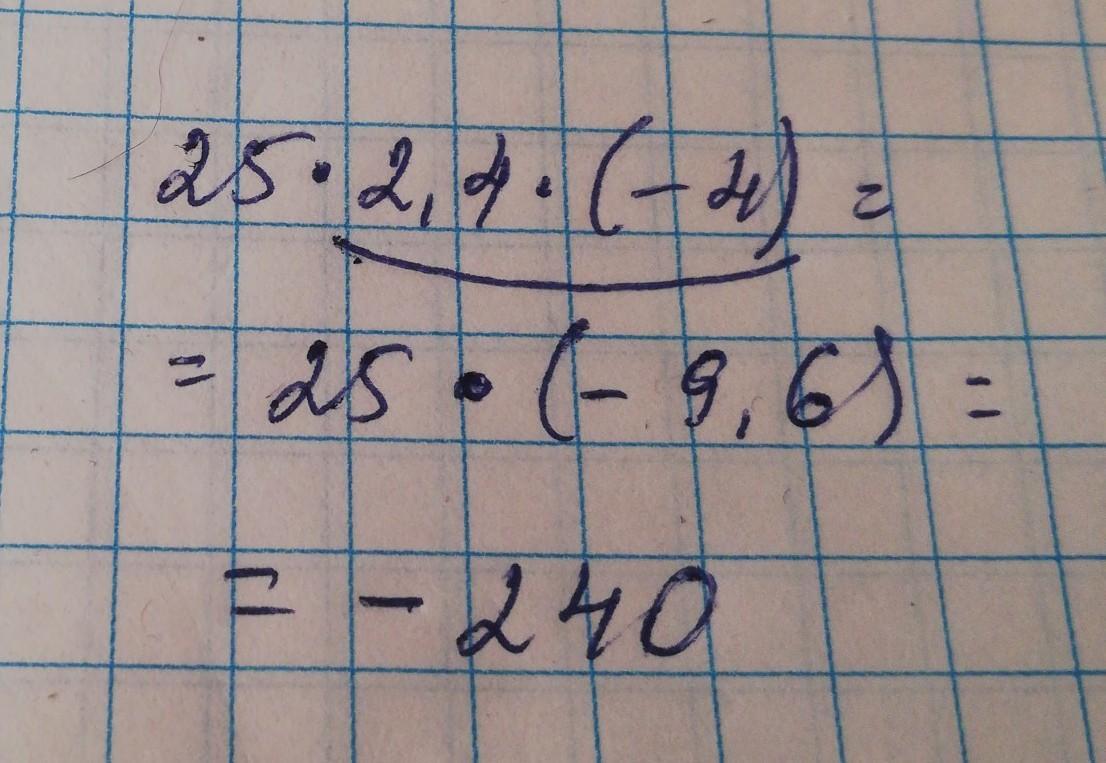 25 · 2,4 · (-4) =
= 25 · (-9,6) =
= -240